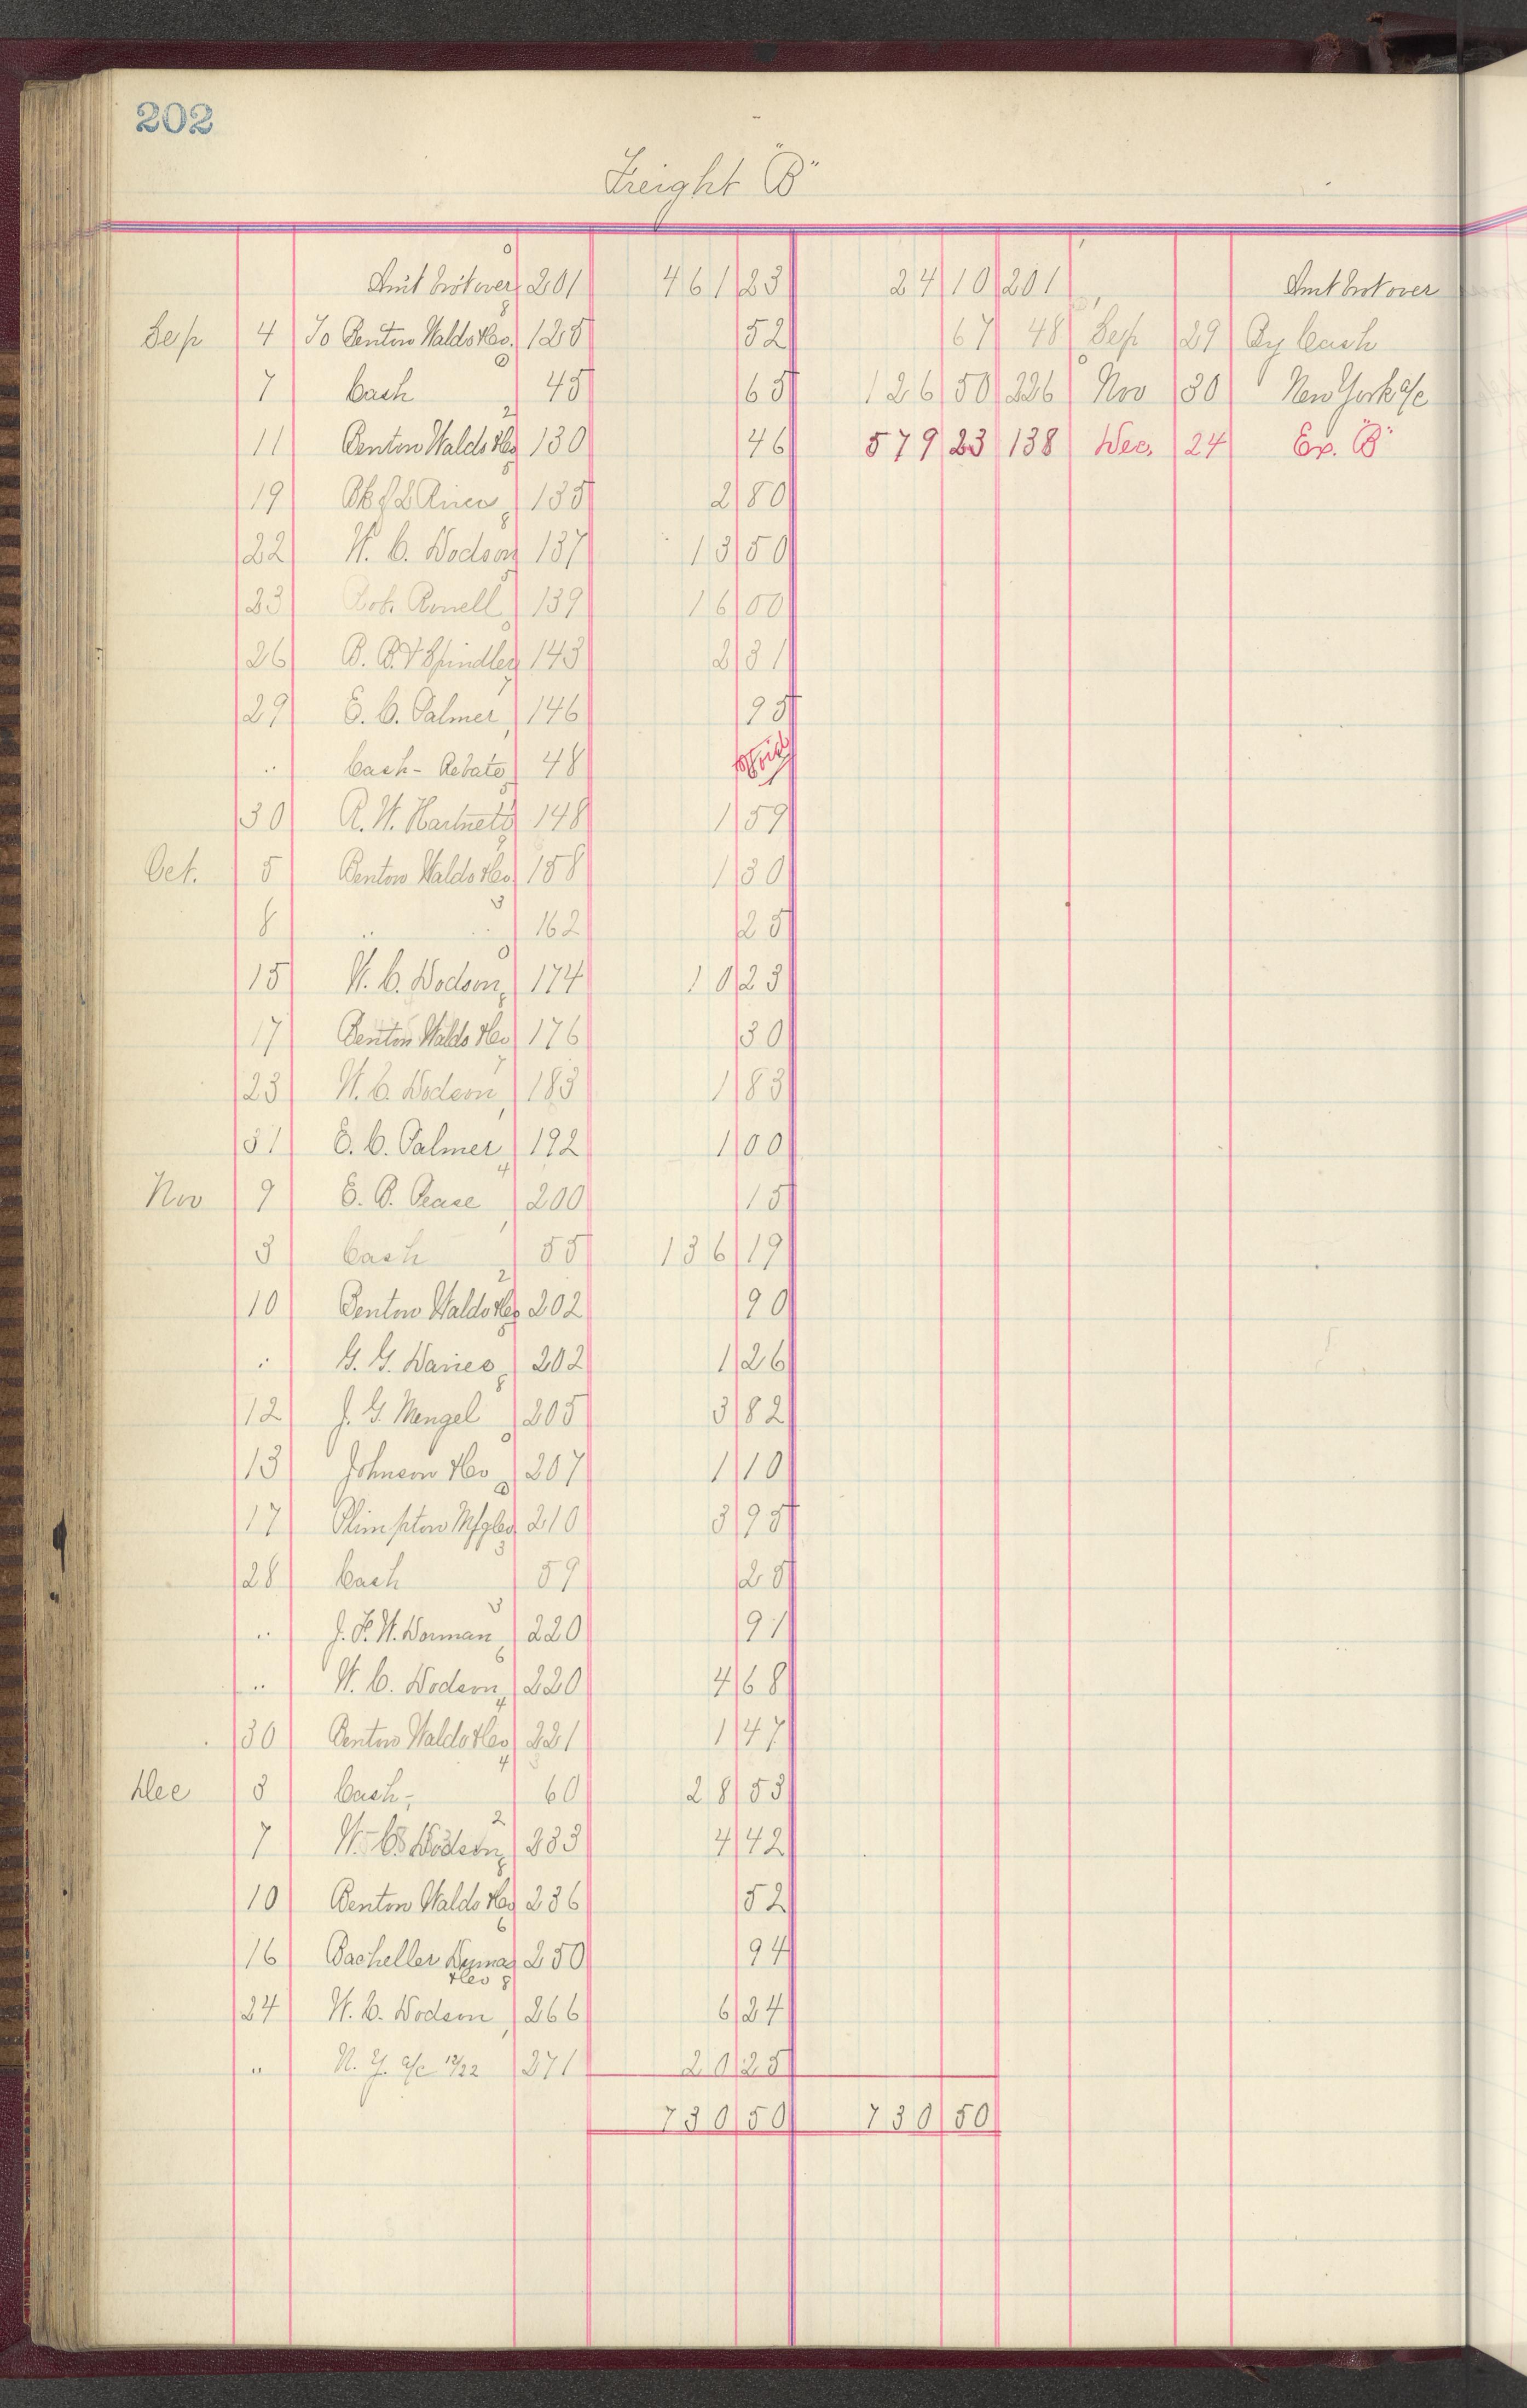 202
Freight "B"
Amt brot over 201 461 23 24 10 201 Amt brot over
Sep 4 To Benton Waldo &Co. 125 52 67 48 Sep 29 By Cash
7 Cash 45 65 126 50 226 Nov 30 " New York a/c
11 Benton Waldo &Co 130 46 579 23 138 Dec. 24 Ex. "B"
19 135 2 80
22 W. C. Dodson 137 13 50
23 Rob. Rowell 139 16 00
26 B. B. & Spindler 143 2 31
29 E. C. Palmer 146 95
" Cash - Rebate 48 Void
30 R. W. Hartnett 148 1 59
Oct. 5 Benton Waldo &Co. 158 1 30
8 " " 162 25
15 W. C. Dodson 174 10 23
17 Benton Waldo &Co 176 30
23 W. C. Dodson 183 1 83
31 E. C. Palmer 192 1 00
Nov 9 E. B. Pease 200 15
3 Cash 55 136 19
10 Benton Waldo &Co 202 90
" G. G. Davies 202 1 26
12 J. G. Mengel 205 3 82
13 Johnson &Co 207 1 10
17 Plimpton Mfg Co 210 3 95
28 Cash 59 25
" J. F. W. Dorman 220 91
" W. C. Dodson 220 4 68
30 Benton Waldo &Co 221 1 47
Dec 3 Cash - 60 28 53
7 W. C. Dodson 233 4 42
10 Benton Waldo &Co 236 52
16 Bacheller Dumas 250 94
&Co
24 W. C. Dodson 266 6 24
" N. Y. a/c 12/22 271 20 25
730 50 730 50